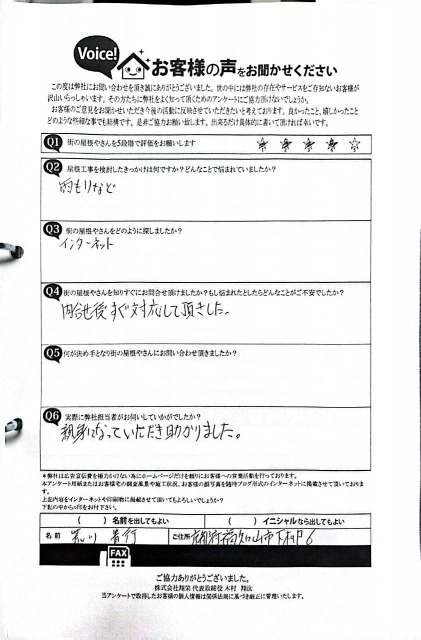 Voice!
お客様の声をお聞かせください
この度は弊社にお問い合わせを頂き誠にありがとうございました。世の中には弊社の存在やサービスをご存知ないお客様が
沢山いらっしゃいます。その方たちに弊社をよく知って頂くためのアンケートにご協力頂けないでしょうか。
お客様のご意見をお聞かせいただき今後の活動に反映させていただきたいと考えております。良かったこと、嬉しかったこと
どのような些細な事でも結構です。是非ご協力お願い致します。出来るだけ具体的に書いて頂ければ幸いです。
Q1 街の屋根やさんを5段階で評価をお願いします ★ ★ ★ ★ ☆
Q2 屋根工事を検討したきっかけは何ですか?どんなことで悩まれていましたか?
雨もりなど
Q3 街の屋根やさんをどのように探しましたか?
インターネット
Q4 街の屋根やさんを知りすぐにお問合せ頂けましたか?もし悩まれたとしたらどんなことがご不安でしたか?
問合せ後すぐ対応して頂きました。
Q5 何が決め手となり街の屋根やさんにお問い合わせ頂きましたか?
Q6 実際に弊社担当者がお伺いしていかがでしたか?
親身になっていただき助かりました。
*弊社は広告宣伝費を極力かけない為にホームページだけを頼りにお客様への営業活動を行っております。
本アンケート用紙またはお客様宅の現金風景や施工状況、お客様の顔写真を随時ブログ形式のインターネットに掲載させて頂いております。
上記内容をインターネットや印刷物に掲載させて頂いてもよろしいでしょうか?
下記の中から○印をお付け下さい。
( ) 名前を出してもよい ( ) イニシャルなら出してもよい
名前 荒川 ご住所 京都府福知山市
FAX
ご協力ありがとうございました。
株式会社翔栄 代表取締役 木村 翔汰
当アンケートで取得したお客様の個人情報は関係法規に基づき厳正に管理いたします。